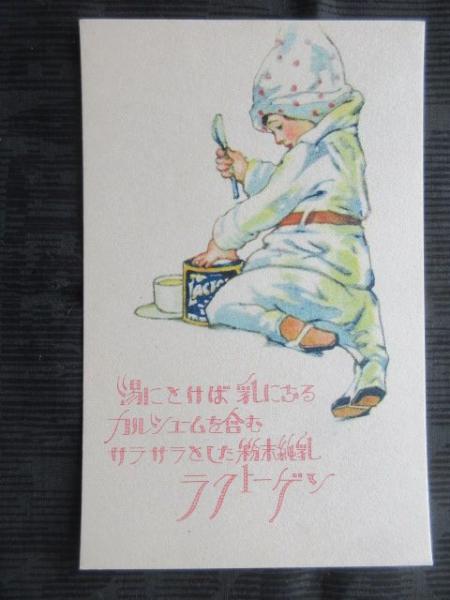 Lacto
湯にとけば 乳になる
カルシユームを含む
サラサラとした粉末純乳
ラクトーゲン